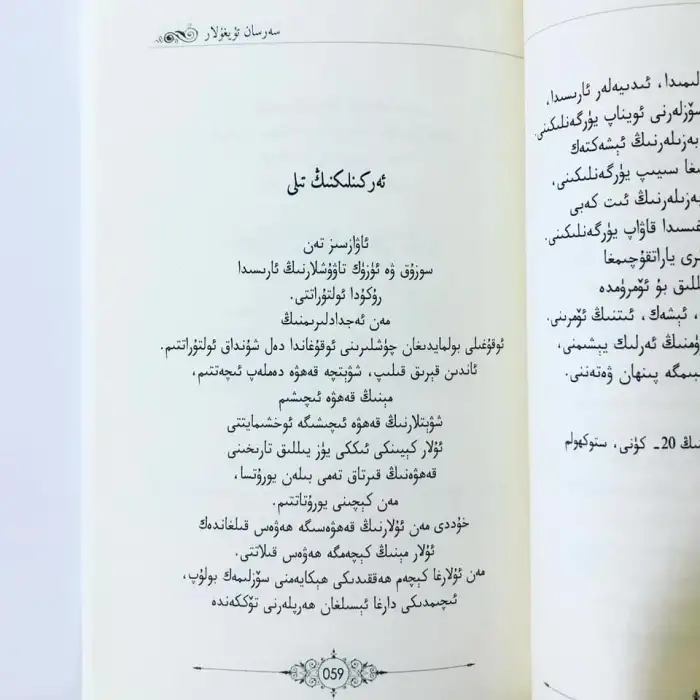 سەرسان ئۇيغۇلار
ئەركىنلىكنىڭ تىلى
ئاۋازسىز تەن
سوزۇق ۋە ئۈزۈك تاۋۇشلارنىڭ ئارىسىدا
رۇكۇدا ئولتۇراتتى.
مەن ئەجدادلىرىمنىڭ
ئوقۇغىلى بولمايدىغان چۈشلىرىنى ئوقۇغاندا دەل شۇنداق ئولتۇراتتىم.
ئاندىن قېرىق قىلىپ، شۋېتچە قەھۋە دەملەپ ئىچەتتىم،
مېنىڭ قەھۋە ئىچىشىم
شۋېتلارنىڭ قەھۋە ئىچىشىگە ئوخشىمايتتى
ئۇلار كېيىنكى ئىككى يۈز يىللىق تارىخىنى
قەھۋەنىڭ قىرتاق تەمى بىلەن يورۇتسا،
مەن كېچىنى يورۇتاتتىم.
خۇددى مەن ئۇلارنىڭ قەھۋەسىگە ھەۋەس قىلغاندەك
ئۇلار مېنىڭ كېچەمگە ھەۋەس قىلاتتى.
مەن ئۇلارغا كېچەم ھەققىدىكى ھېكايەمنى سۆزلىمەك بولۇپ،
ئىچىمدىكى دارغا ئېسىلغان ھەرپلەرنى تۆككەندە
059
لىمىدا، ئىدىيەلەر ئارىسىدا،
سۆزلەرنى ئويناپ يۈرگەنلىكىنى.
بەزىلەرنىڭ ئېشەكتەك
غا سىيىپ يۈرگەنلىكىنى،
بەزىلەرنىڭ ئىت كەبى
غىسىدا قاۋاپ يۈرگەنلىكىنى.
رى ياراتقۇچىمغا
للىق بۇ ئۆمرۈمدە
، ئېشەك، ئىتنىڭ ئۆمرىنى.
ۈمنىڭ ئەرلىك يېشىمنى،
ىمگە پىنھان ۋەتەننى.
نىڭ 20ـ كۈنى، ستوكھولم